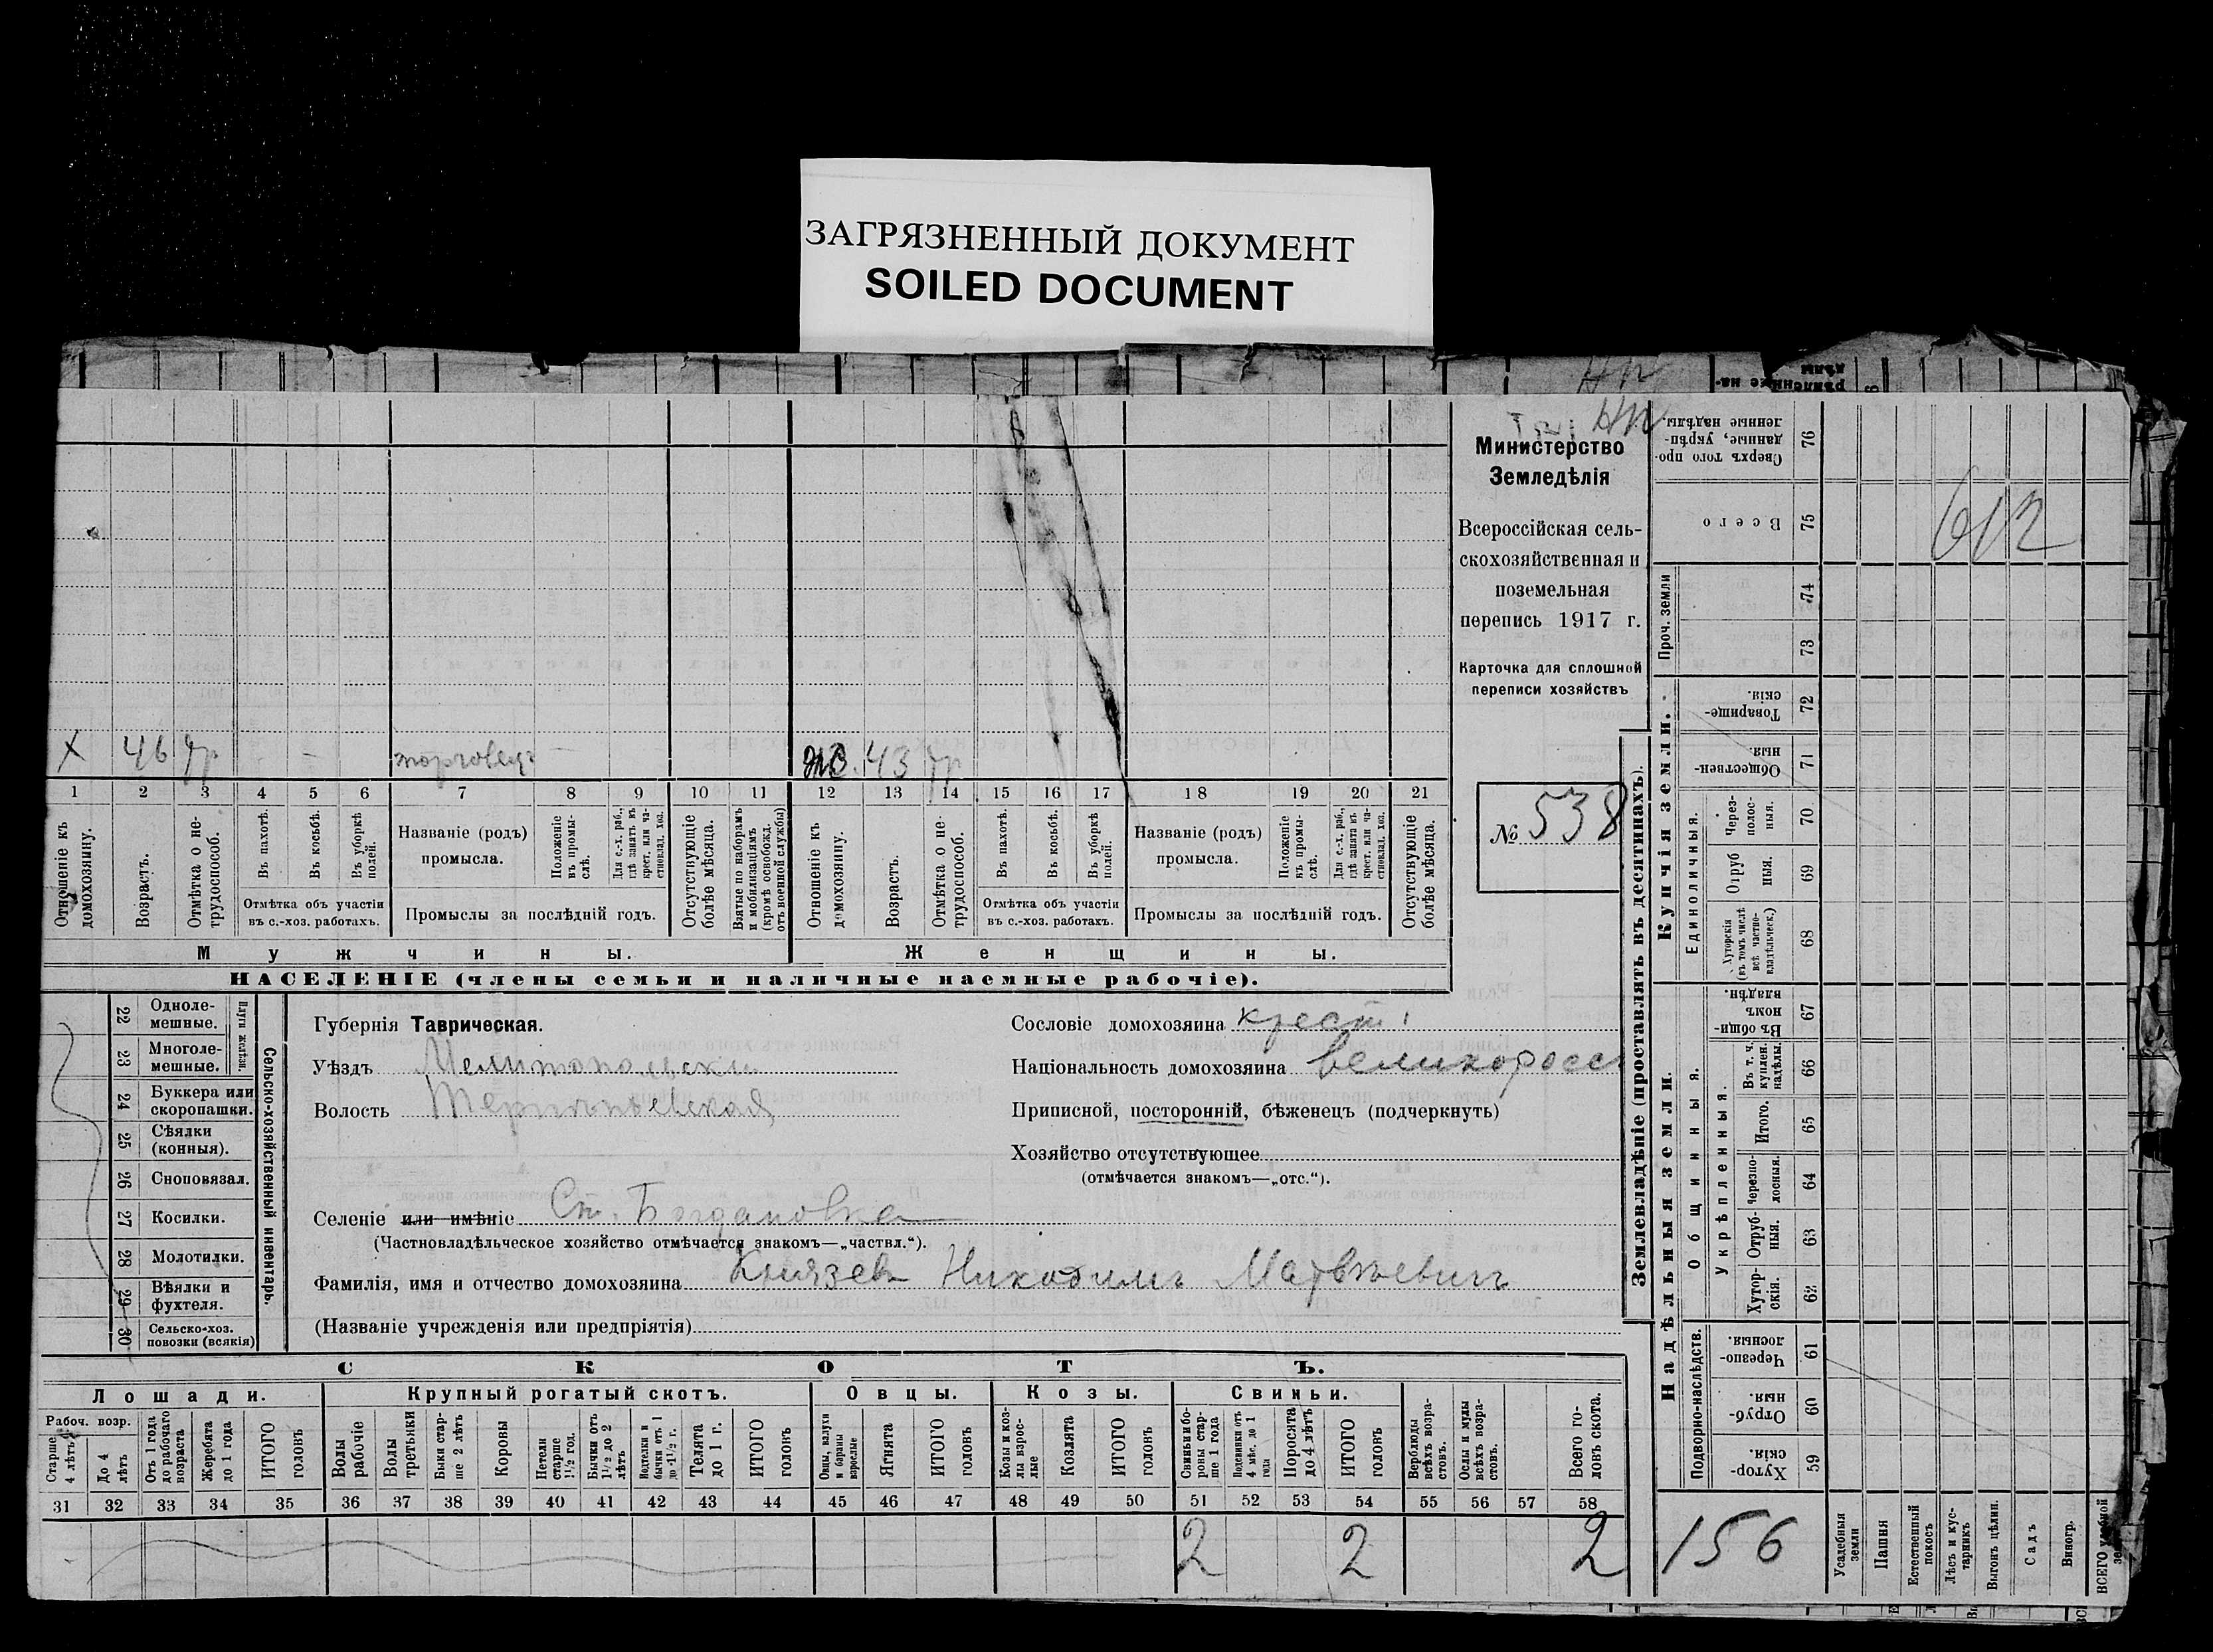 ЗАГРЯЗНЕННЫЙ ДОКУМЕНТ
SOILED DOCUMENT
Министерство
Земледѣлія
Всероссійская сель-
скохозяйственная и
поземельная
перепись 1917 г.
Карточка для сплошной
переписи хозяйствъ
№ 538
х 46 торговец
жо. 43
1 2 3 4 5 6 7 8 9 10 11 12 13 14 15 16 17 18 19 20 21
Отношеніе къ домохозяину.
Возрастъ.
Отмѣтка о не-трудоспособ.
Въ пахотѣ.
Въ косьбѣ.
Въ уборкѣ полей.
Отмѣтка объ участіи
въ с.-хоз. работахъ.
Названіе (родъ)
промысла.
Положеніе въ промы-слѣ.
Для с.-х. раб., гдѣ занятъ въ крест. или ча-стновлад. хоз.
Промыслы за послѣдній годъ.
Отсутствующіе болѣе мѣсяца.
Взятые по наборамъ и мобилизаціямъ (кромѣ освобожд. отъ военной службы)
Отношеніе къ домохозяину.
Возрастъ.
Отмѣтка о не-трудоспособ.
Въ пахотѣ.
Въ косьбѣ.
Въ уборкѣ полей.
Отмѣтка объ участіи
въ с.-хоз. работахъ.
Названіе (родъ)
промысла.
Положеніе въ промы-слѣ.
Для с.-х. раб., гдѣ занята въ крест. или ча-стновлад. хоз.
Промыслы за послѣдній годъ.
Отсутствующіе болѣе мѣсяца.
Мужчины.
Женщины.
НАСЕЛЕНІЕ (члены семьи и наличные наемные рабочіе).
22 Одноле-мешные.
23 Многоле-мешные.
Плуги желѣзн.
24 Буккера или скоропашки.
25 Сѣялки (конныя).
26 Сноповязал.
27 Косилки.
28 Молотилки.
29 Вѣялки и фухтеля.
30 Сельско-хоз. повозки (всякія)
Сельско-хозяйственный инвентарь.
Губернія Таврическая.
Уѣздъ Мелитопольски
Волость
Селеніе или имѣніе Ст. Богдановка
(Частновладѣльческое хозяйство отмѣчается знакомъ—„частвл.“).
Фамилія, имя и отчество домохозяина Князев Никодимъ Матвѣевичъ
(Названіе учрежденія или предпріятія)
Сословіе домохозяина крест.
Національность домохозяина великоросс
Приписной, посторонній, бѣженецъ (подчеркнуть)
Хозяйство отсутствующее
(отмѣчается знакомъ—„отс.“).
СКОТЪ.
Лошади. Крупный рогатый скотъ. Овцы. Козы. Свиньи.
Рабоч. возр.
Старше 4 лѣтъ
До 4 лѣтъ
Отъ 1 года до рабочаго возраста
Жеребята до 1 года
ИТОГО головъ
Волы рабочіе
Волы третьяки
Быки стар-ше 2 лѣтъ
Коровы
Нетели старше 1½ год.
Бычки отъ 1½ до 2 лѣтъ
Подтелки и бычки отъ 1 до 1½ г.
Телята до 1 г.
ИТОГО головъ
Овцы, валухи и бараны взрослые
Ягнята
ИТОГО головъ
Козы и коз-лы взрос-лые
Козлята
ИТОГО головъ
Свиньи и бо-ровы стар-ше 1 года
Подсвинки отъ 4 мѣс. до 1 года
Поросята до 4 лѣтъ
ИТОГО головъ
Верблюды всѣхъ возра-стовъ.
Ослы и мулы всѣхъ возра-стовъ.
Всего го-ловъ скота.
31 32 33 34 35 36 37 38 39 40 41 42 43 44 45 46 47 48 49 50 51 52 53 54 55 56 57 58
2 2 2
Землевладѣніе (проставлять въ десятинахъ).
Надѣльныя земли.
Купчія земли.
Проч. земли
Подворно-наслѣдств.
Общинныя.
Укрѣпленныя.
Единоличныя.
Сверхъ того про-данные, укрѣп-ленные надѣлы. 76
Всего 75
74
73
Товарище-скія. 72
Обществен-ныя. 71
Через-полос-ныя. 70
Отруб ныя. 69
Хуторскія (въ томъ числѣ всѣ частно-владѣльческ.) 68
Въ общи-номъ владѣн. 67
Въ т. ч. куплен. надѣлы. 66
Итого. 65
Черезпо-лосныя. 64
Отруб-ныя. 63
Хутор-скія. 62
Черезпо-лосныя. 61
Отруб-ныя. 60
Хутор-скія. 59
612
156
Усадебныя земли
Пашня
Естественный покосъ
Лѣсъ и кус-тарникъ
Выгонъ цѣлин.
Садъ
Виногр.